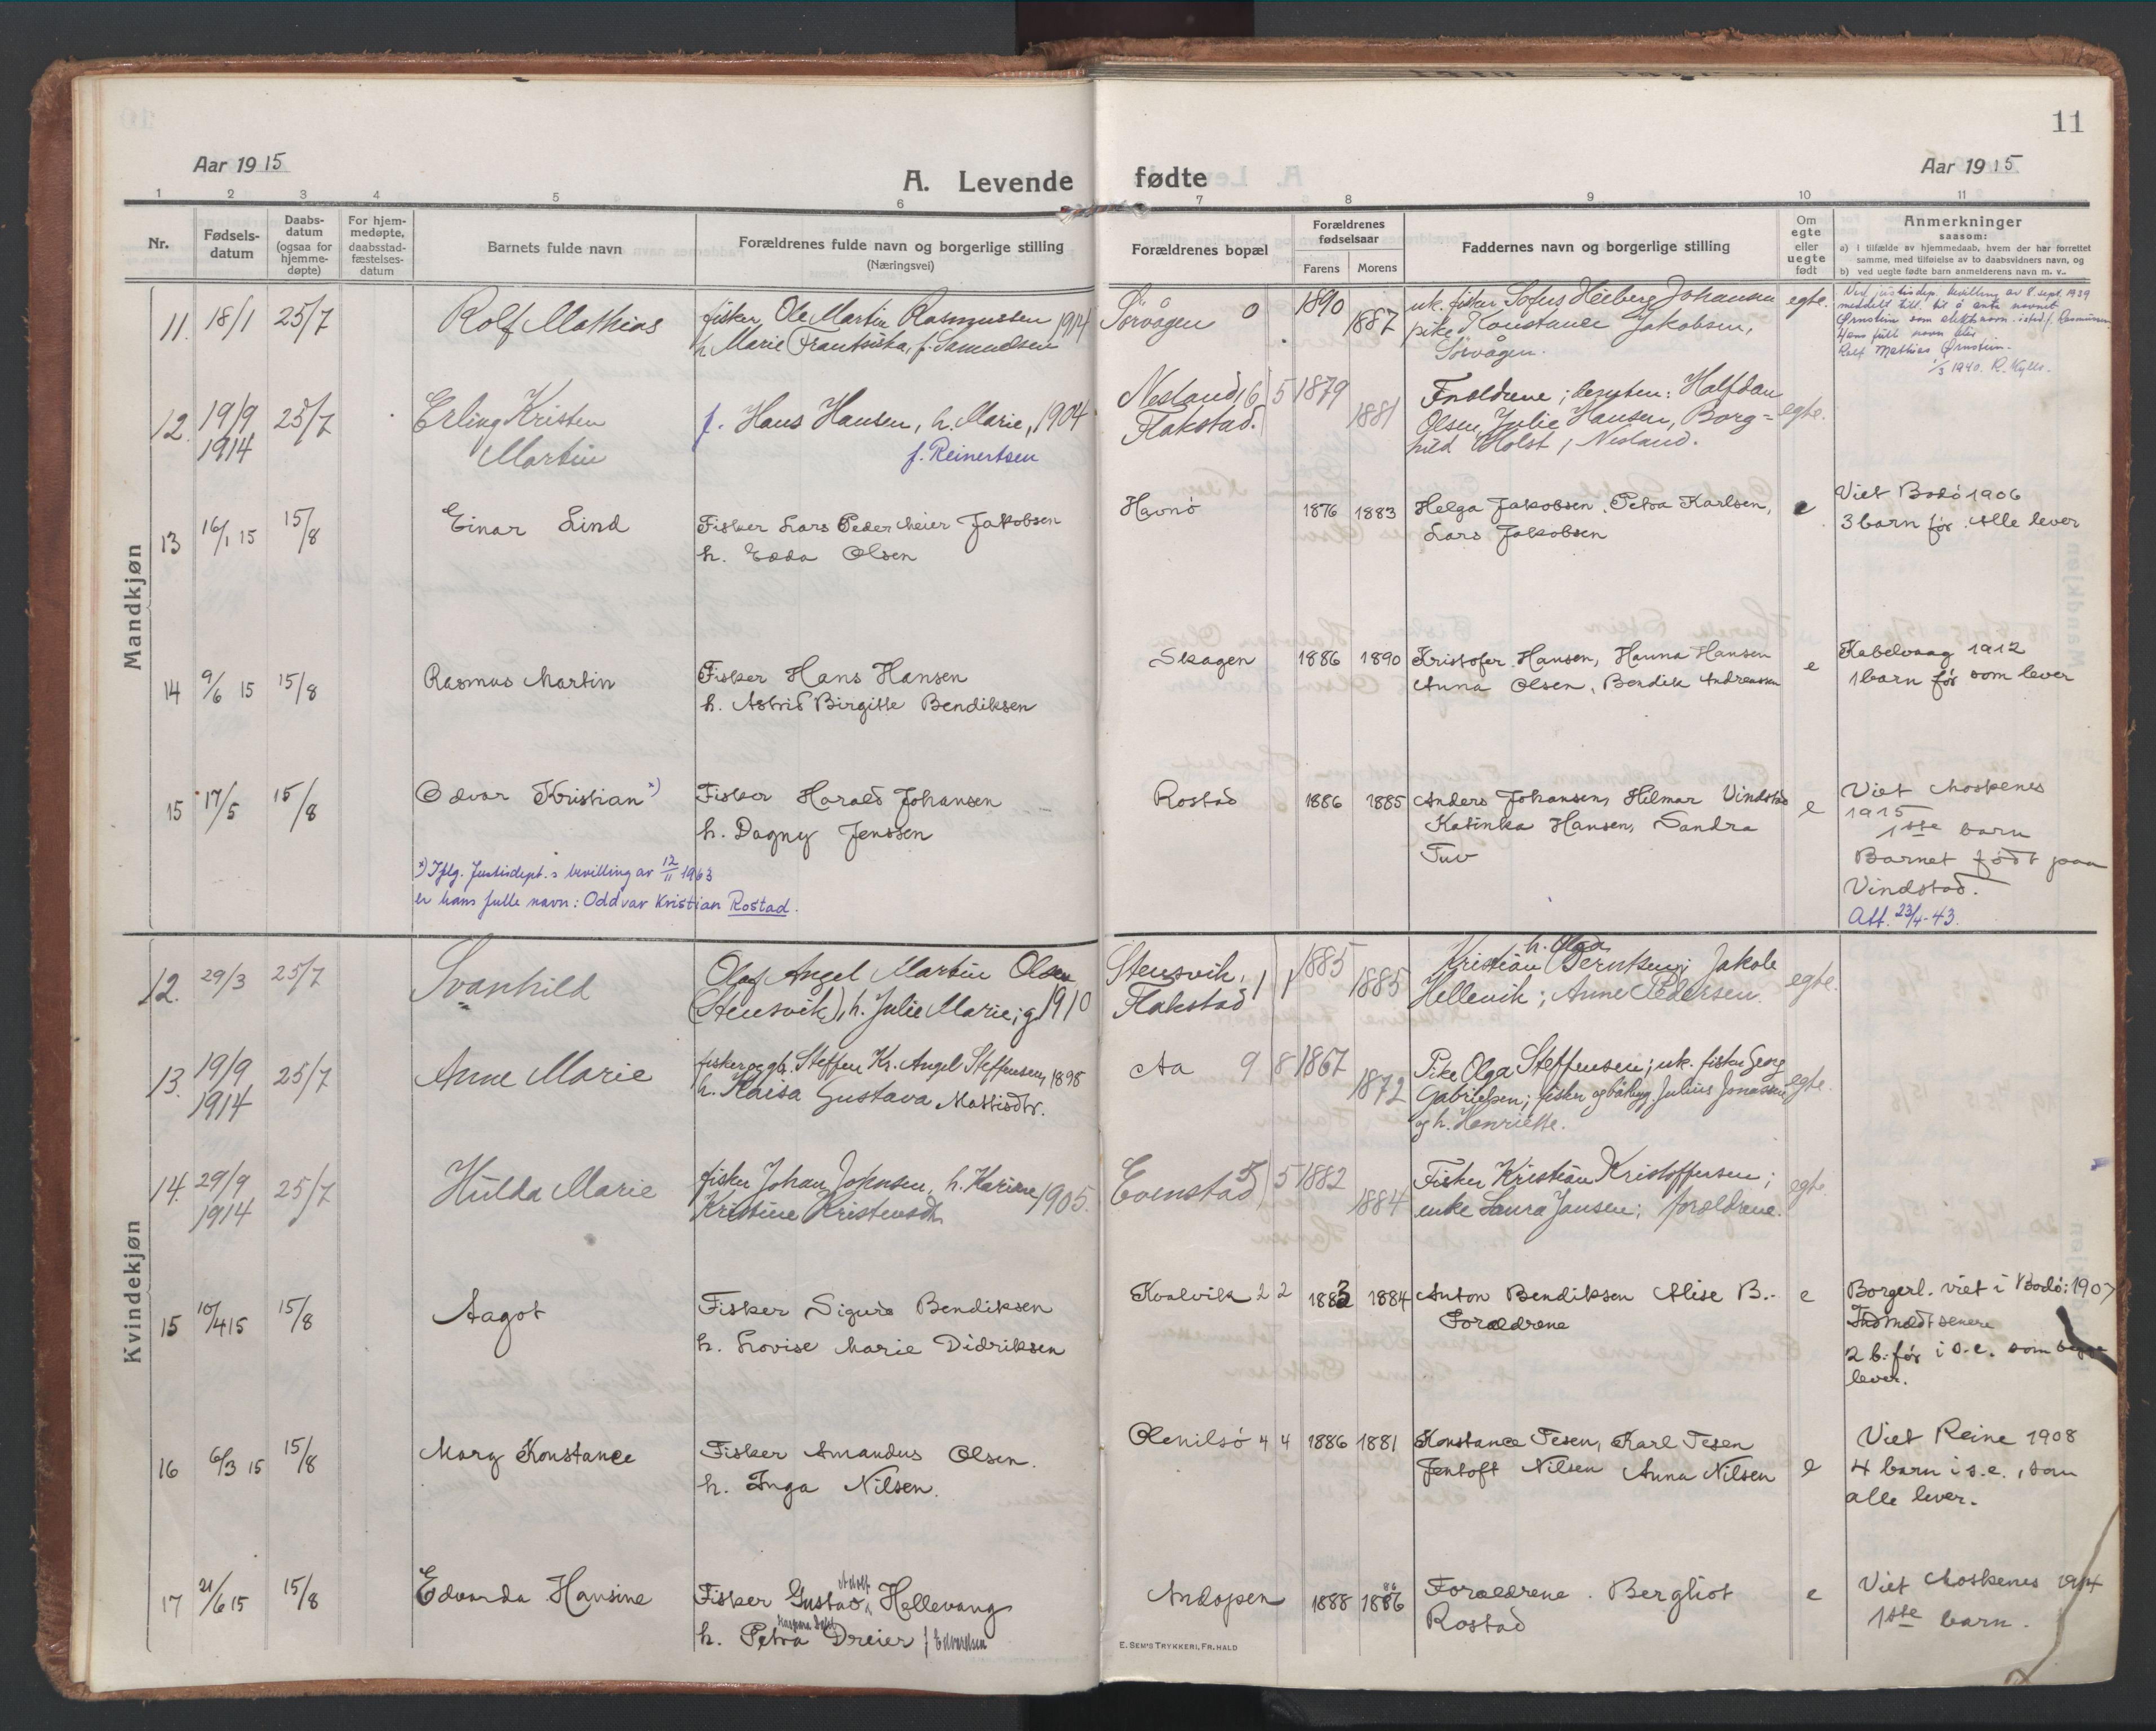 11
Aar 1915
A. Levende
fødte
Aar 1915
1 2 3 4 5 6 7 8 9 10 11
Nr.
Fødsels-
datum
Daabs-
datum
(ogsaa for
hjemme-
døpte)
For hjem-
medøpte,
daabsstad-
fæstelses-
datum
Barnets fulde navn
Forældrenes fulde navn og borgerlige stilling
(Næringsvei)
Forældrenes bopæl
Forældrenes
fødselsaar
Farens Morens
Faddernes navn og borgerlige stilling
Om
egte
eller
uegte
født
Anmerkninger
saasom:
a) i tilfælde av hjemmedaab, hvem der har forrettet
samme, med tilføielse av to daabsvidners navn, og
b) ved uegte fødte barn anmelderens navn m. v..
Mandkjøn
11. 18/1 25/7
Rolf Mathias
fisker Ole Martin Rasmussen 1914
h. Marie Frantsiska, f. Samuelsen
Sørvågen 0
1890 1887
uk. fisker Sofus Heiberg Johansen
pike Konstance Jakobsen,
Sørvågen.
egte.
Ved justisdep. bevilling av 8. sept. 1939
meddelt till. til å anta navnet
Ørnstein som slektsnavn istedf. Rasmussen
Hans fulle navn blir
Rolf Mathias Ørnstein.
1/3 1940. R. Kylls.
12. 19/9 25/7
1914
Erling Kristen
Martin
f. Hans Hansen, h. Marie, 1904
f. Reinertsen
Nesland, 6 5
Flakstad.
1879 1881
Forældrene; desuten: Halfdan
Olsen, Julie Hansen, Borg=
hild Holst, Nesland.
egte.
13 16/1 15 15/8
Einar Lind
Fisker Lars Peder Meier Jakobsen
h. Edda Olsen
Havnø
1876 1883
Helga Jakobsen, Petra Karlsen,
Lars Jakobsen
e
Viet Bodø 1906
3 barn før. Alle lever
14 9/6 15 15/8
Rasmus Martin
Fisker Hans Hansen
h. Astrid Birgitte Bendiksen
Skagen
1886 1890
Kristofer Hansen, Hanna Hansen
Anna Olsen, Bendik Andreassen
e
Kabelvaag 1912
1 barn før som lever
15 17/5 15/8
Odvar Kristian x)
Fisker Harald Johansen
h. Dagny Jenssen
x) Iflg. Justisdept.s bevilling av 12/11 1963
er hans fulle navn: Oddvar Kristian Rostad.
Rostad
1886 1885
Anders Johansen, Hilmar Vindstad
Katinka Hansen, Sandra
Tuv
e
Viet Moskenes
1915
1ste barn
Barnet født paa
Vindstad.
Att. 23/4-43.
Kvindekjøn
12. 29/3 25/7
Svanhild
Olaf Angel Martin Olsen
(Stensvik), h. Julie Marie; g. 1910
Stensvik, 1 1
Flakstad
1885 1885
h. Olga
Kristian Berntsen; Jakob
Hellevik; Anne Pedersen.
egte.
13. 19/9 25/7
1914
Anne Marie
fisker og gb. Steffen Kr. Angel Steffensen, 1898
h. Kaisa Gustava Mattisdtr.
Aa 9 8
1867 1872
Pike Olga Steffensen; uk. fisker Georg
Gabrielsen; fisker og båtbyg. Julius Jonassen
og h. Henriette.
egte.
14. 29/9 25/7
1914
Hulda Marie
fisker Johan Johnsen, h. Karine 1905.
Kristine Kristensdtr.
Evenstad 5 5
1882 1884
Fisker Kristian Kristoffersen;
enke Laura Jansen; forældrene.
egte.
15 10/4 15 15/8
Aagot
Fisker Sigurd Bendiksen
h. Lovise Marie Didriksen
Kvalvik 2 2
1883 1884
Anton Bendiksen Alise B..
Forældrene
e
Borgerl. viet i Bodø: 1907
Indmeldt senere
2 b. før i s.e. som begge
lever.
16 6/3 15 15/8
Mary Konstance
Fisker Amandus Olsen.
h. Inga Nilsen.
Olenilsø 4 4
1886 1881
Konstance Tesen, Karl Tesen
Jentoft Nilsen Anna Nilsen
e
Viet Reine 1908
4 barn i s.e., som
alle lever.
17 21/6 15 15/8
Edvarda Hansine
Adolf
Fisker Gustav Hellevang
h. Petra Dreier f. Edvardsen
Andopen
1888 1886
Forældrene. Bergliot
Rostad
e
Viet Moskenes 1914
1ste barn.
E. SEM'S TRYKKERI, FR.HALD